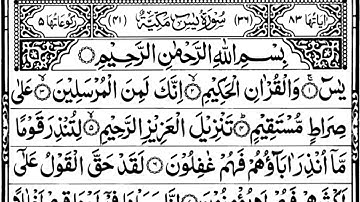 اٰیاتها ۸۳ (۳۶) سُوْرَةُ یٰسٓ مَكِّیَّةٌ (۴۱) رکوعاتها ۵
بِسْمِ اللّٰهِ الرَّحْمٰنِ الرَّحِیْمِ
یٰسٓ ۚ﴿۱﴾ وَالْقُرْاٰنِ الْحَكِیْمِ ۙ﴿۲﴾ اِنَّكَ لَمِنَ الْمُرْسَلِیْنَ ۙ﴿۳﴾ عَلٰی
صِرَاطٍ مُّسْتَقِیْمٍ ؕ﴿۴﴾ تَنْزِیْلَ الْعَزِیْزِ الرَّحِیْمِ ۙ﴿۵﴾ لِتُنْذِرَ قَوْمًا
مَّاۤ اُنْذِرَ اٰبَآؤُهُمْ فَهُمْ غٰفِلُوْنَ ﴿۶﴾ لَقَدْ حَقَّ الْقَوْلُ عَلٰۤی
اَكْثَرِهِمْ فَهُمْ لَا یُؤْمِنُوْنَ